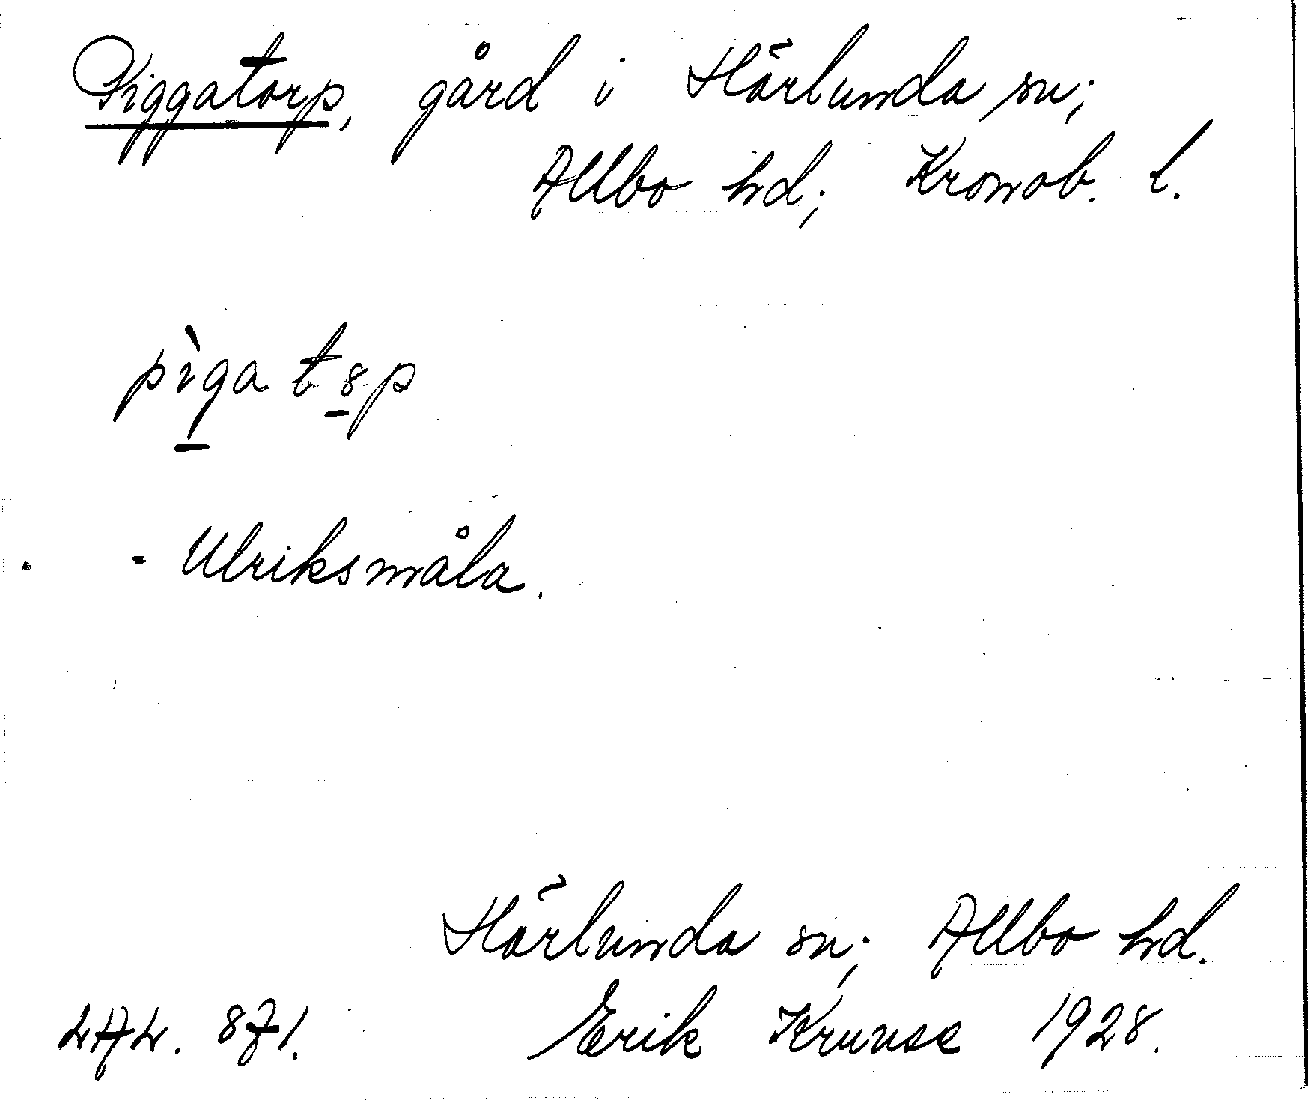 Piggatorp, gård i Härlunda sn;
Allbo hd; Kronob. l.
pìga t8p
- Ulriksmåla.
Härlunda sn; Allbo hd.
LAL. 871. Erik Kruuse 1928.